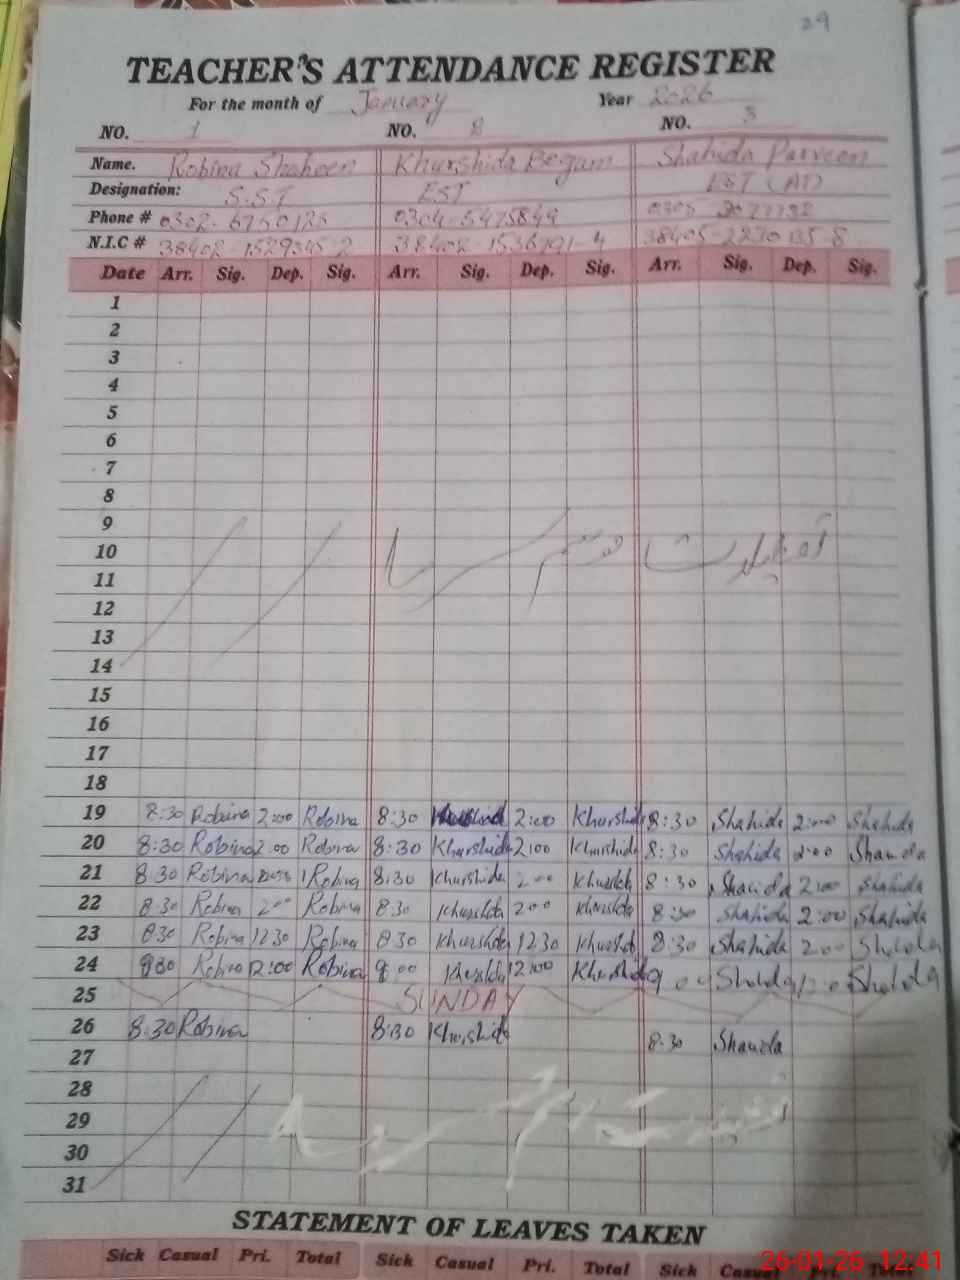 29
TEACHER'S ATTENDANCE REGISTER
For the month of January Year 2026
NO. 1 NO. 2 NO. 3
Name. Robina Shaheen Khurshida Begum Shahida Parveen
Designation: S.S.T EST EST (AT)
Phone # 0302-6750123 0304-5475849 0305
N.I.C # 38402-1529345-2 38402-1536791-4 38405-2270135-8
Date Arr. Sig. Dep. Sig. Arr. Sig. Dep. Sig. Arr. Sig. Dep. Sig.
1
2
3
4
5
6
7
8
9
10 تعطیلات موسم سرما
11
12
13
14
15
16
17
18
19 8:30 Robina 2:00 Robina 8:30 Khurshid 2:00 Khurshid 8:30 Shahida 2:00 Shahida
20 8:30 Robina 2:00 Robina 8:30 Khurshida 2:00 Khurshida 8:30 Shahida 2:00 Shahida
21 8:30 Robina Robina 8:30 Khurshida 2:00 Khurshida 8:30 Shahida 2:00 Shahida
22 8:30 Robina 2:00 Robina 8:30 Khurshida 2:00 Khurshida 8:30 Shahida 2:00 Shahida
23 8:30 Robina 12:30 Robina 8:30 Khurshida 12:30 Khurshid 8:30 Shahida 2:00 Shahida
24 Robina 12:00 Robina 9:00 Khurshida 12:00 Khurshid 9:00 Shahida Shahida
25 SUNDAY
26 8:30 Robina 8:30 Khurshida 8:30 Shahida
27
28
29 تعطیلات موسم سرما
30
31
STATEMENT OF LEAVES TAKEN
Sick Casual Pri. Total Sick Casual Pri. Total Sick Casual Pri. Total
26-01-26 12:41